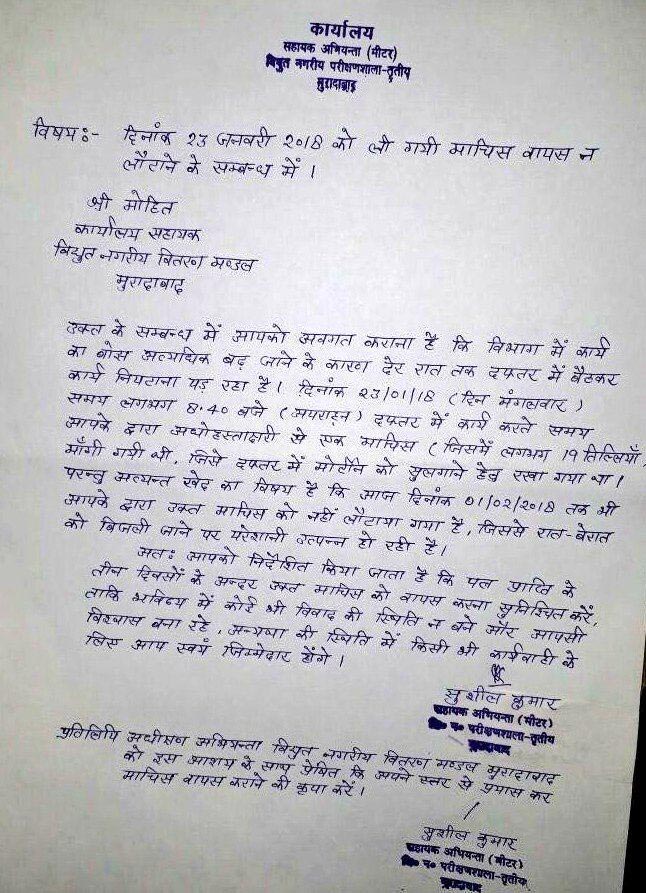 कार्यालय
सहायक अभियन्ता (मीटर)
विद्युत नगरीय परीक्षणशाला-तृतीय
मुरादाबाद
विषय:- दिनांक 23 जनवरी 2018 को ली गयी माचिस वापस न
लौटाने के सम्बन्ध में ।
श्री मोहित
कार्यालय सहायक
विद्युत नगरीय वितरण मण्डल
मुरादाबाद
उक्त के सम्बन्ध में आपको अवगत कराना है कि विभाग में कार्य
का बोस अत्यधिक बढ़ जाने के कारण देर रात तक दफ्तर में बैठकर
कार्य निपटाना पड़ रहा है। दिनांक 23/01/18 (दिन मंगलवार)
समय लगभग 8.40 बजे (अपराह्न) दफ्तर में कार्य करते समय
आपके द्वारा अधोहस्ताक्षरी से एक माचिस (जिसमें लगभग 19 तिल्लियाँ)
माँगी गयी थी, जिसे दफ्तर में मोर्टीन को सुलगाने हेतु रखा गया था।
परन्तु अत्यन्त खेद का विषय है कि आज दिनांक 01/02/2018 तक भी
आपके द्वारा उक्त माचिस को नहीं लौटाया गया है, जिससे रात-बेरात
को बिजली जाने पर परेशानी उत्पन्न हो रही है।
अतः आपको निर्देशित किया जाता है कि पत्र प्राप्ति के
तीन दिवसों के अन्दर उक्त माचिस को वापस करना सुनिश्चित करें,
ताकि भविष्य में कोई भी विवाद की स्थिति न बने और आपसी
विश्वास बना रहे, अन्यथा की स्थिति में किसी भी कार्यवाही के
लिए आप स्वयं जिम्मेदार होंगे।
सुशील कुमार
सहायक अभियन्ता (मीटर)
परीक्षणशाला-तृतीय
मुरादाबाद
प्रतिलिपि अधीक्षण अभियन्ता विद्युत नगरीय वितरण मण्डल मुरादाबाद
को इस आशय के साथ प्रेषित कि अपने स्तर से प्रयास कर
माचिस वापस कराने की कृपा करें।
सुशील कुमार
सहायक अभियन्ता (मीटर)
परीक्षणशाला-तृतीय
मुरादाबाद